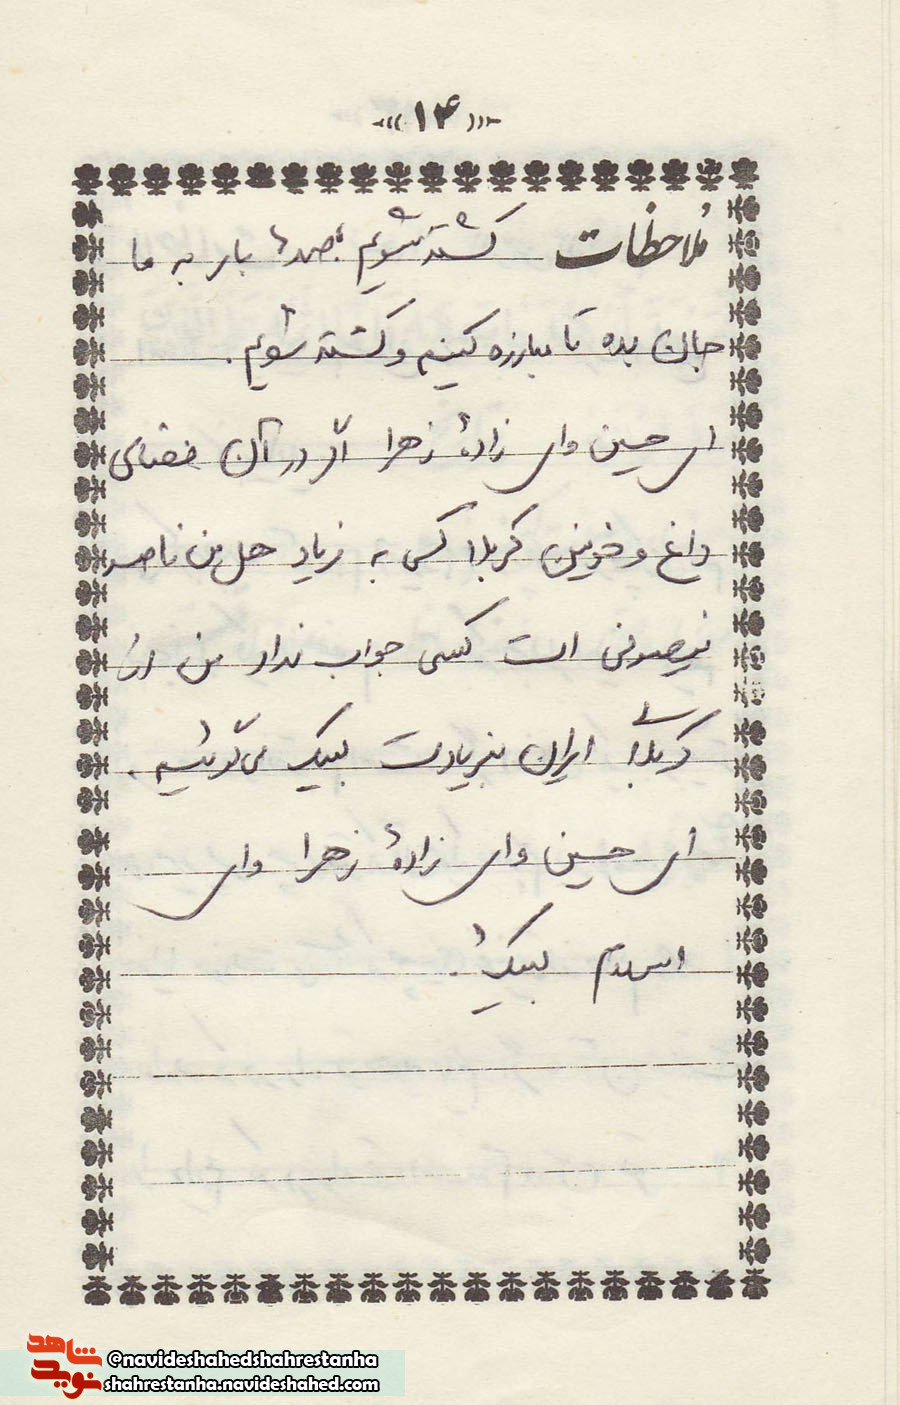 «۱۴»
ملاحظات کشته شویم بصدها بار به ما
جان بده تا مبارزه کنیم و کشته شویم.
ای حسین وای زادهٔ زهرا اگر در آن فضای
داغ و خونین کربلا کسی به فریاد هل من ناصر
ینصرنی ات کسی جواب نداد من از
کربلای ایران بفریادت لبیک می‌گوئیم.
ای حسین وای زادهٔ زهرا وای
اسلام لبیک.
شاهد
نوید
©navideshahedshahrestanha
shahrestanha.navideshahed.com